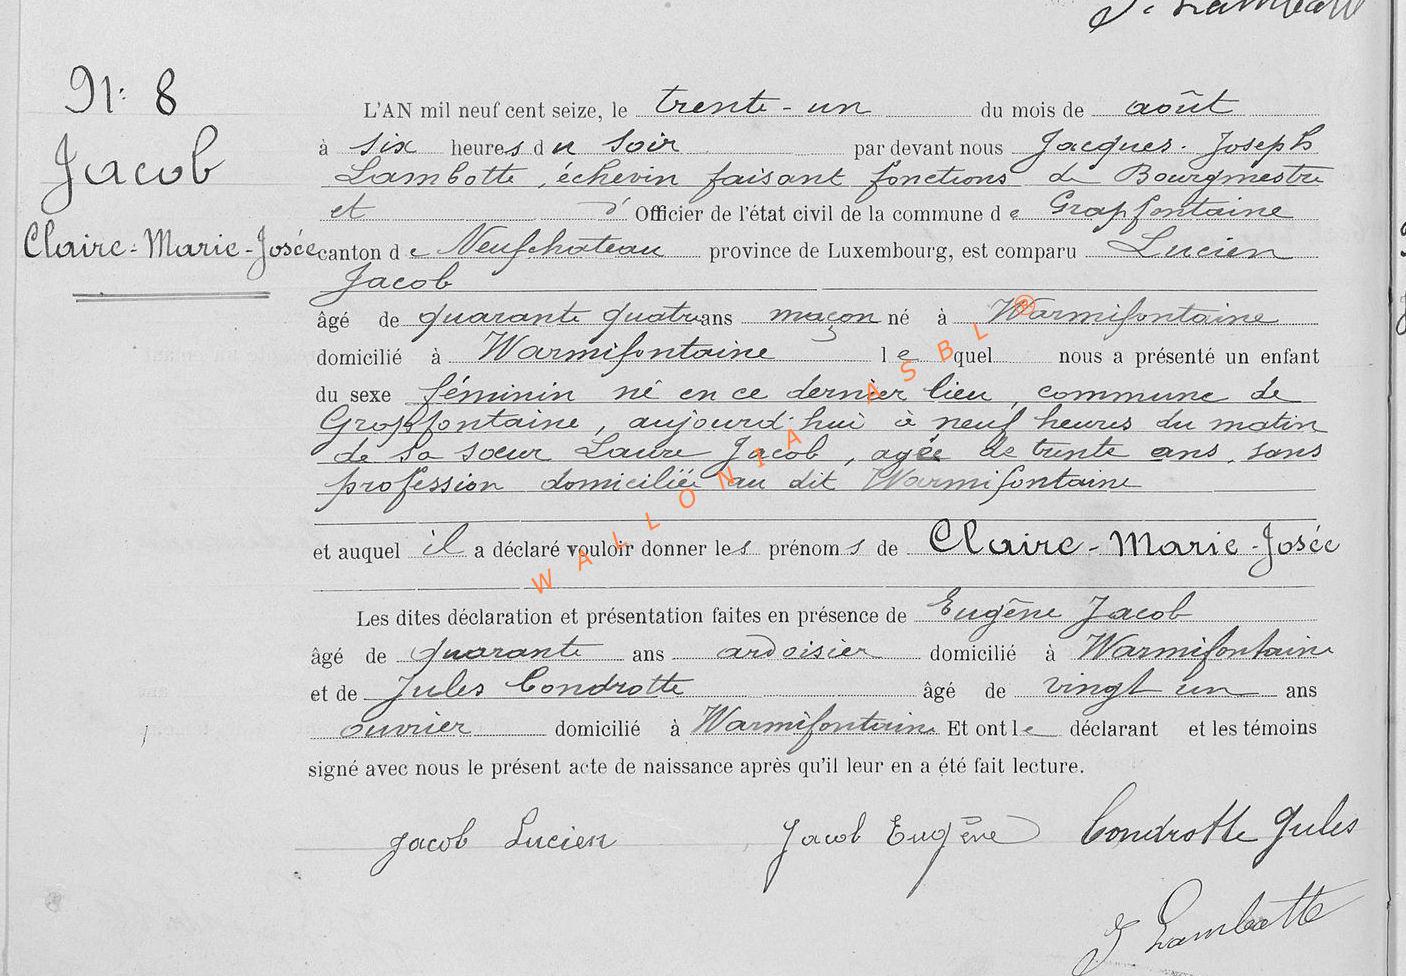 J. Lambotte
N: 8
Jacob
Claire-Marie-Josée
L'AN mil neuf cent seize, le trente-un du mois de août
à six heures du soir par devant nous Jacques-Joseph
Lambotte, échevin faisant fonctions de Bourgmestre
et d' Officier de l'état civil de la commune de Grapfontaine
canton de Neufchateau province de Luxembourg, est comparu Lucien
Jacob
âgé de quarante quatre ans maçon né à Warmifontaine
domicilié à Warmifontaine le quel nous a présenté un enfant
du sexe féminin né en ce dernier lieu, commune de
Grapfontaine, aujourd'hui à neuf heures du matin
de sa sœur Laure Jacob, agée de trente ans, sans
profession domiciliée au dit Warmifontaine
et auquel il a déclaré vouloir donner les prénoms de Claire-Marie-Josée
Les dites déclaration et présentation faites en présence de Eugène Jacob
âgé de quarante ans ardoisier domicilié à Warmifontaine
et de Jules Condrotte âgé de vingt un ans
ouvrier domicilié à Warmifontaine Et ont le déclarant et les témoins
signé avec nous le présent acte de naissance après qu'il leur en a été fait lecture.
Jacob Lucien Jacob Eugène Condrotte Jules
J Lambotte
WALLONIA ASBL ®